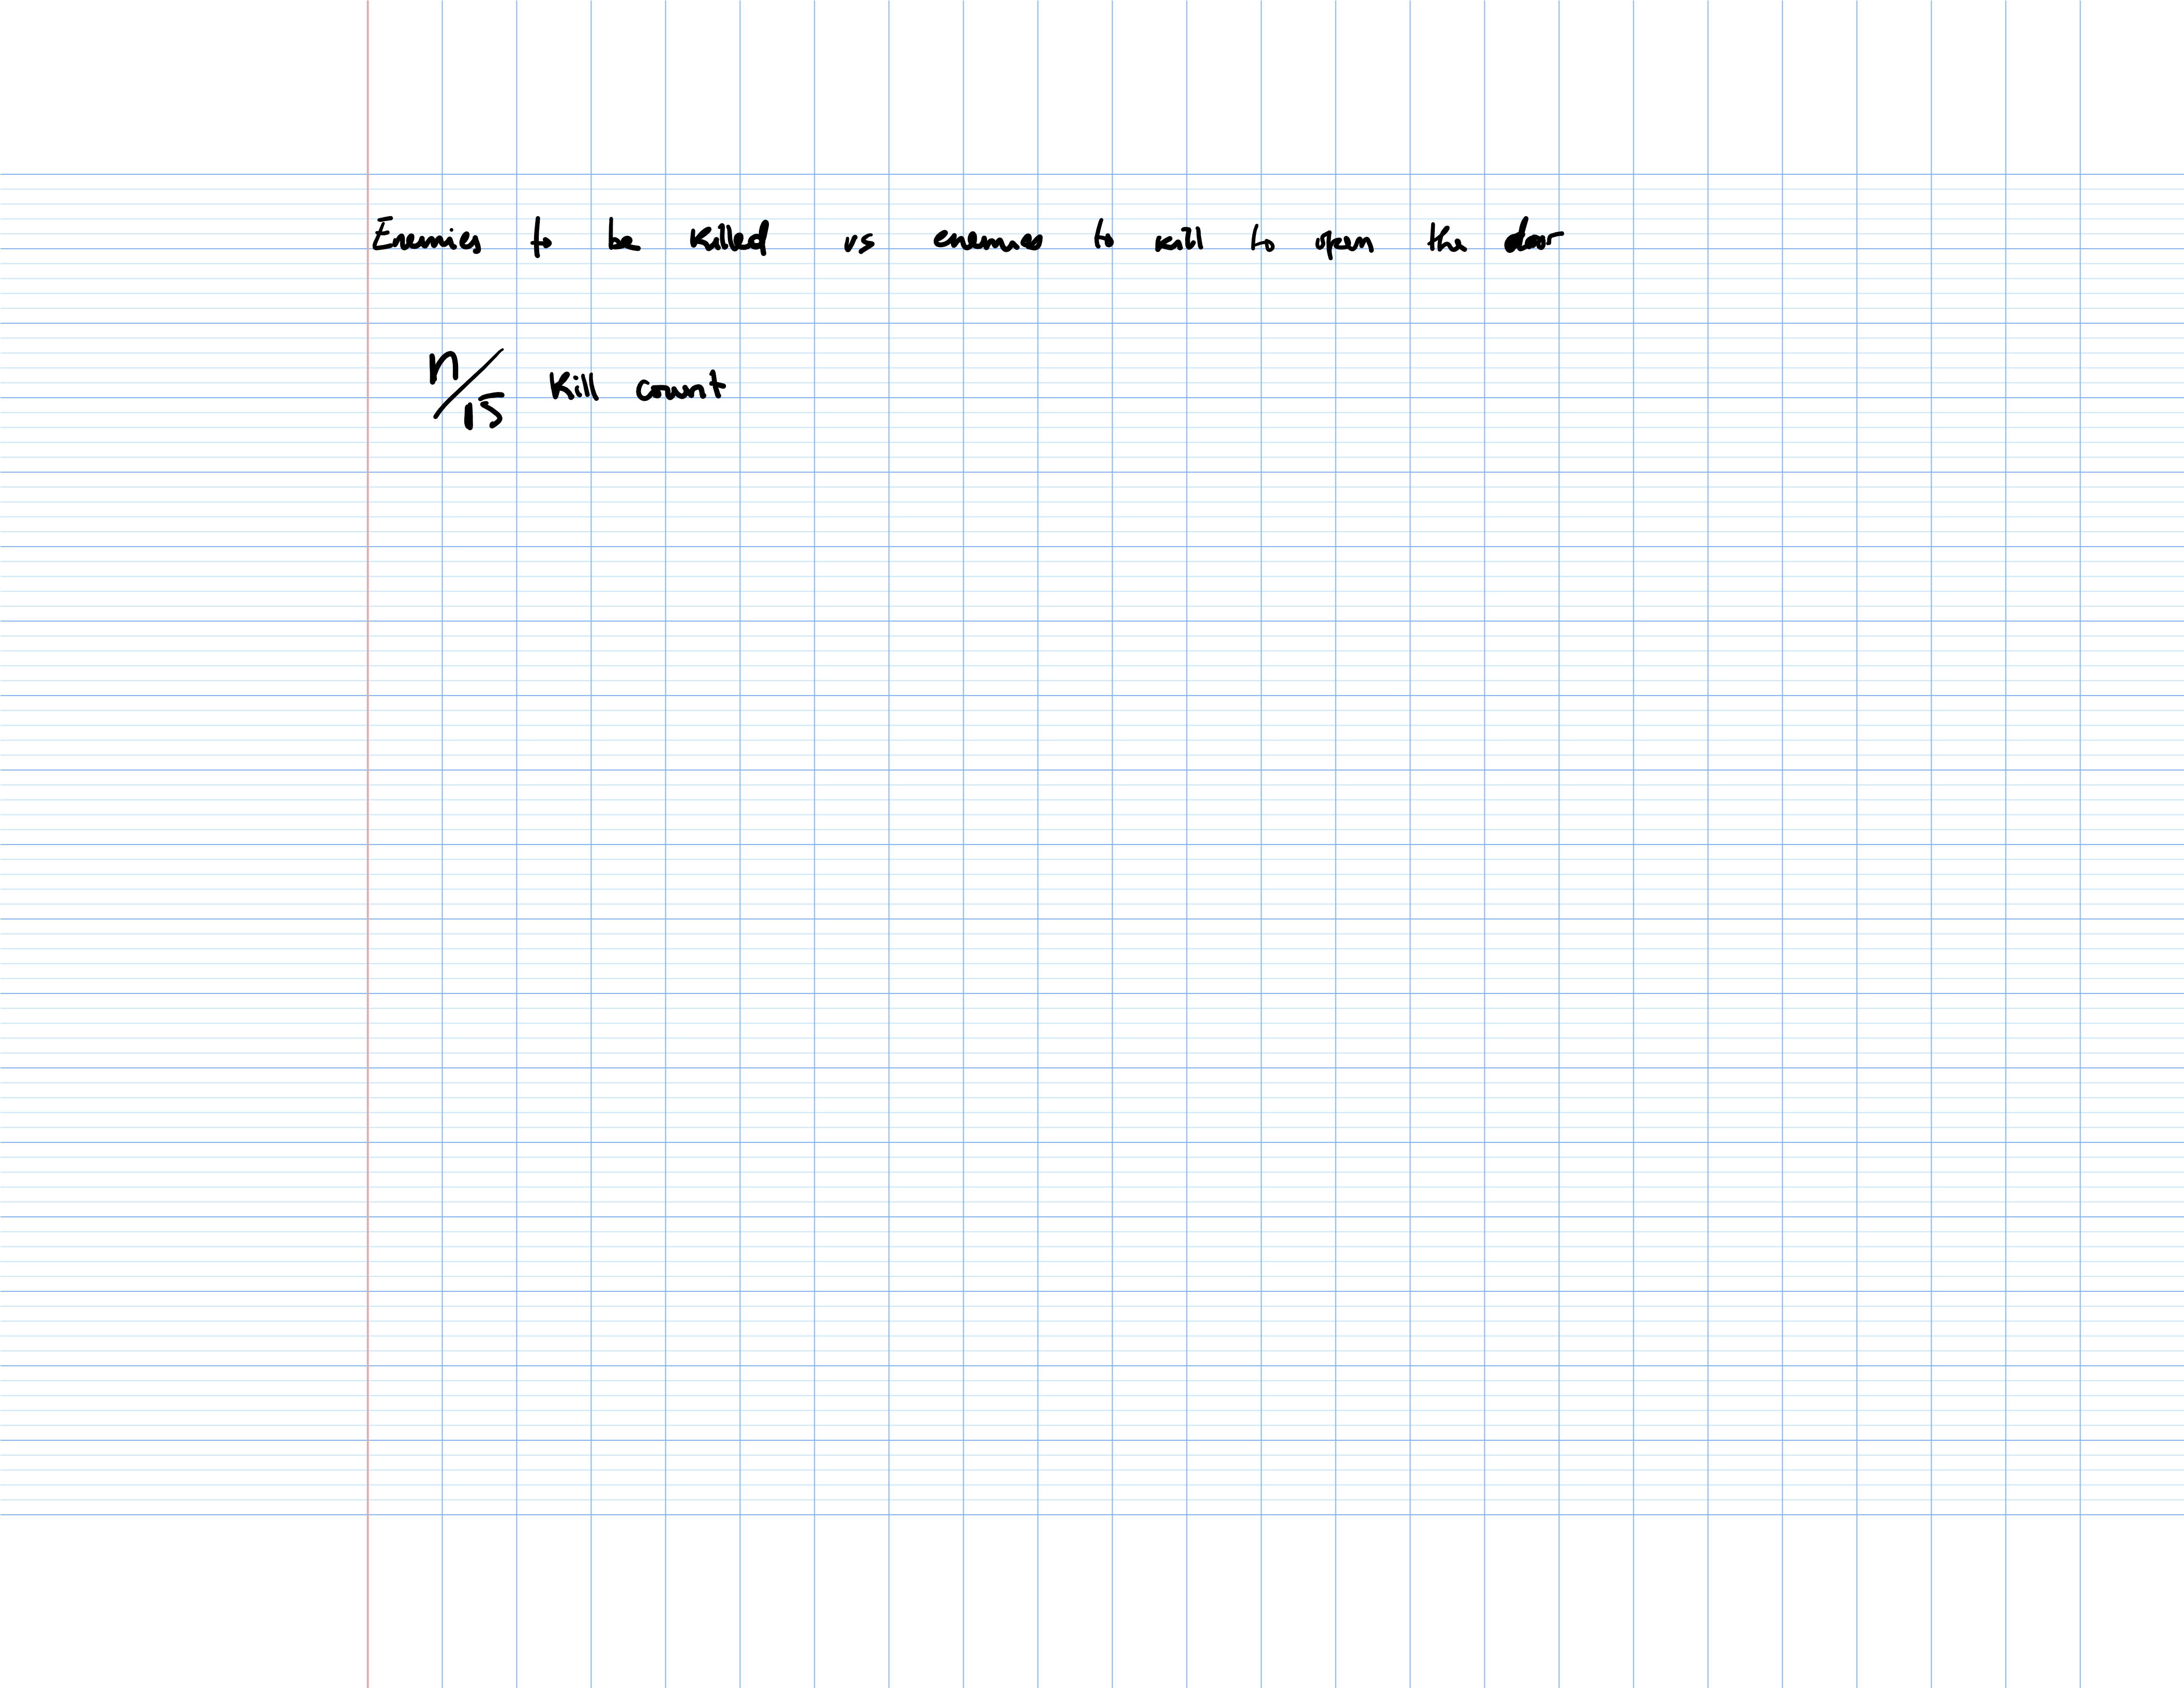 Enemies to be killed vs enemies to kill to open the door
n/15 kill count